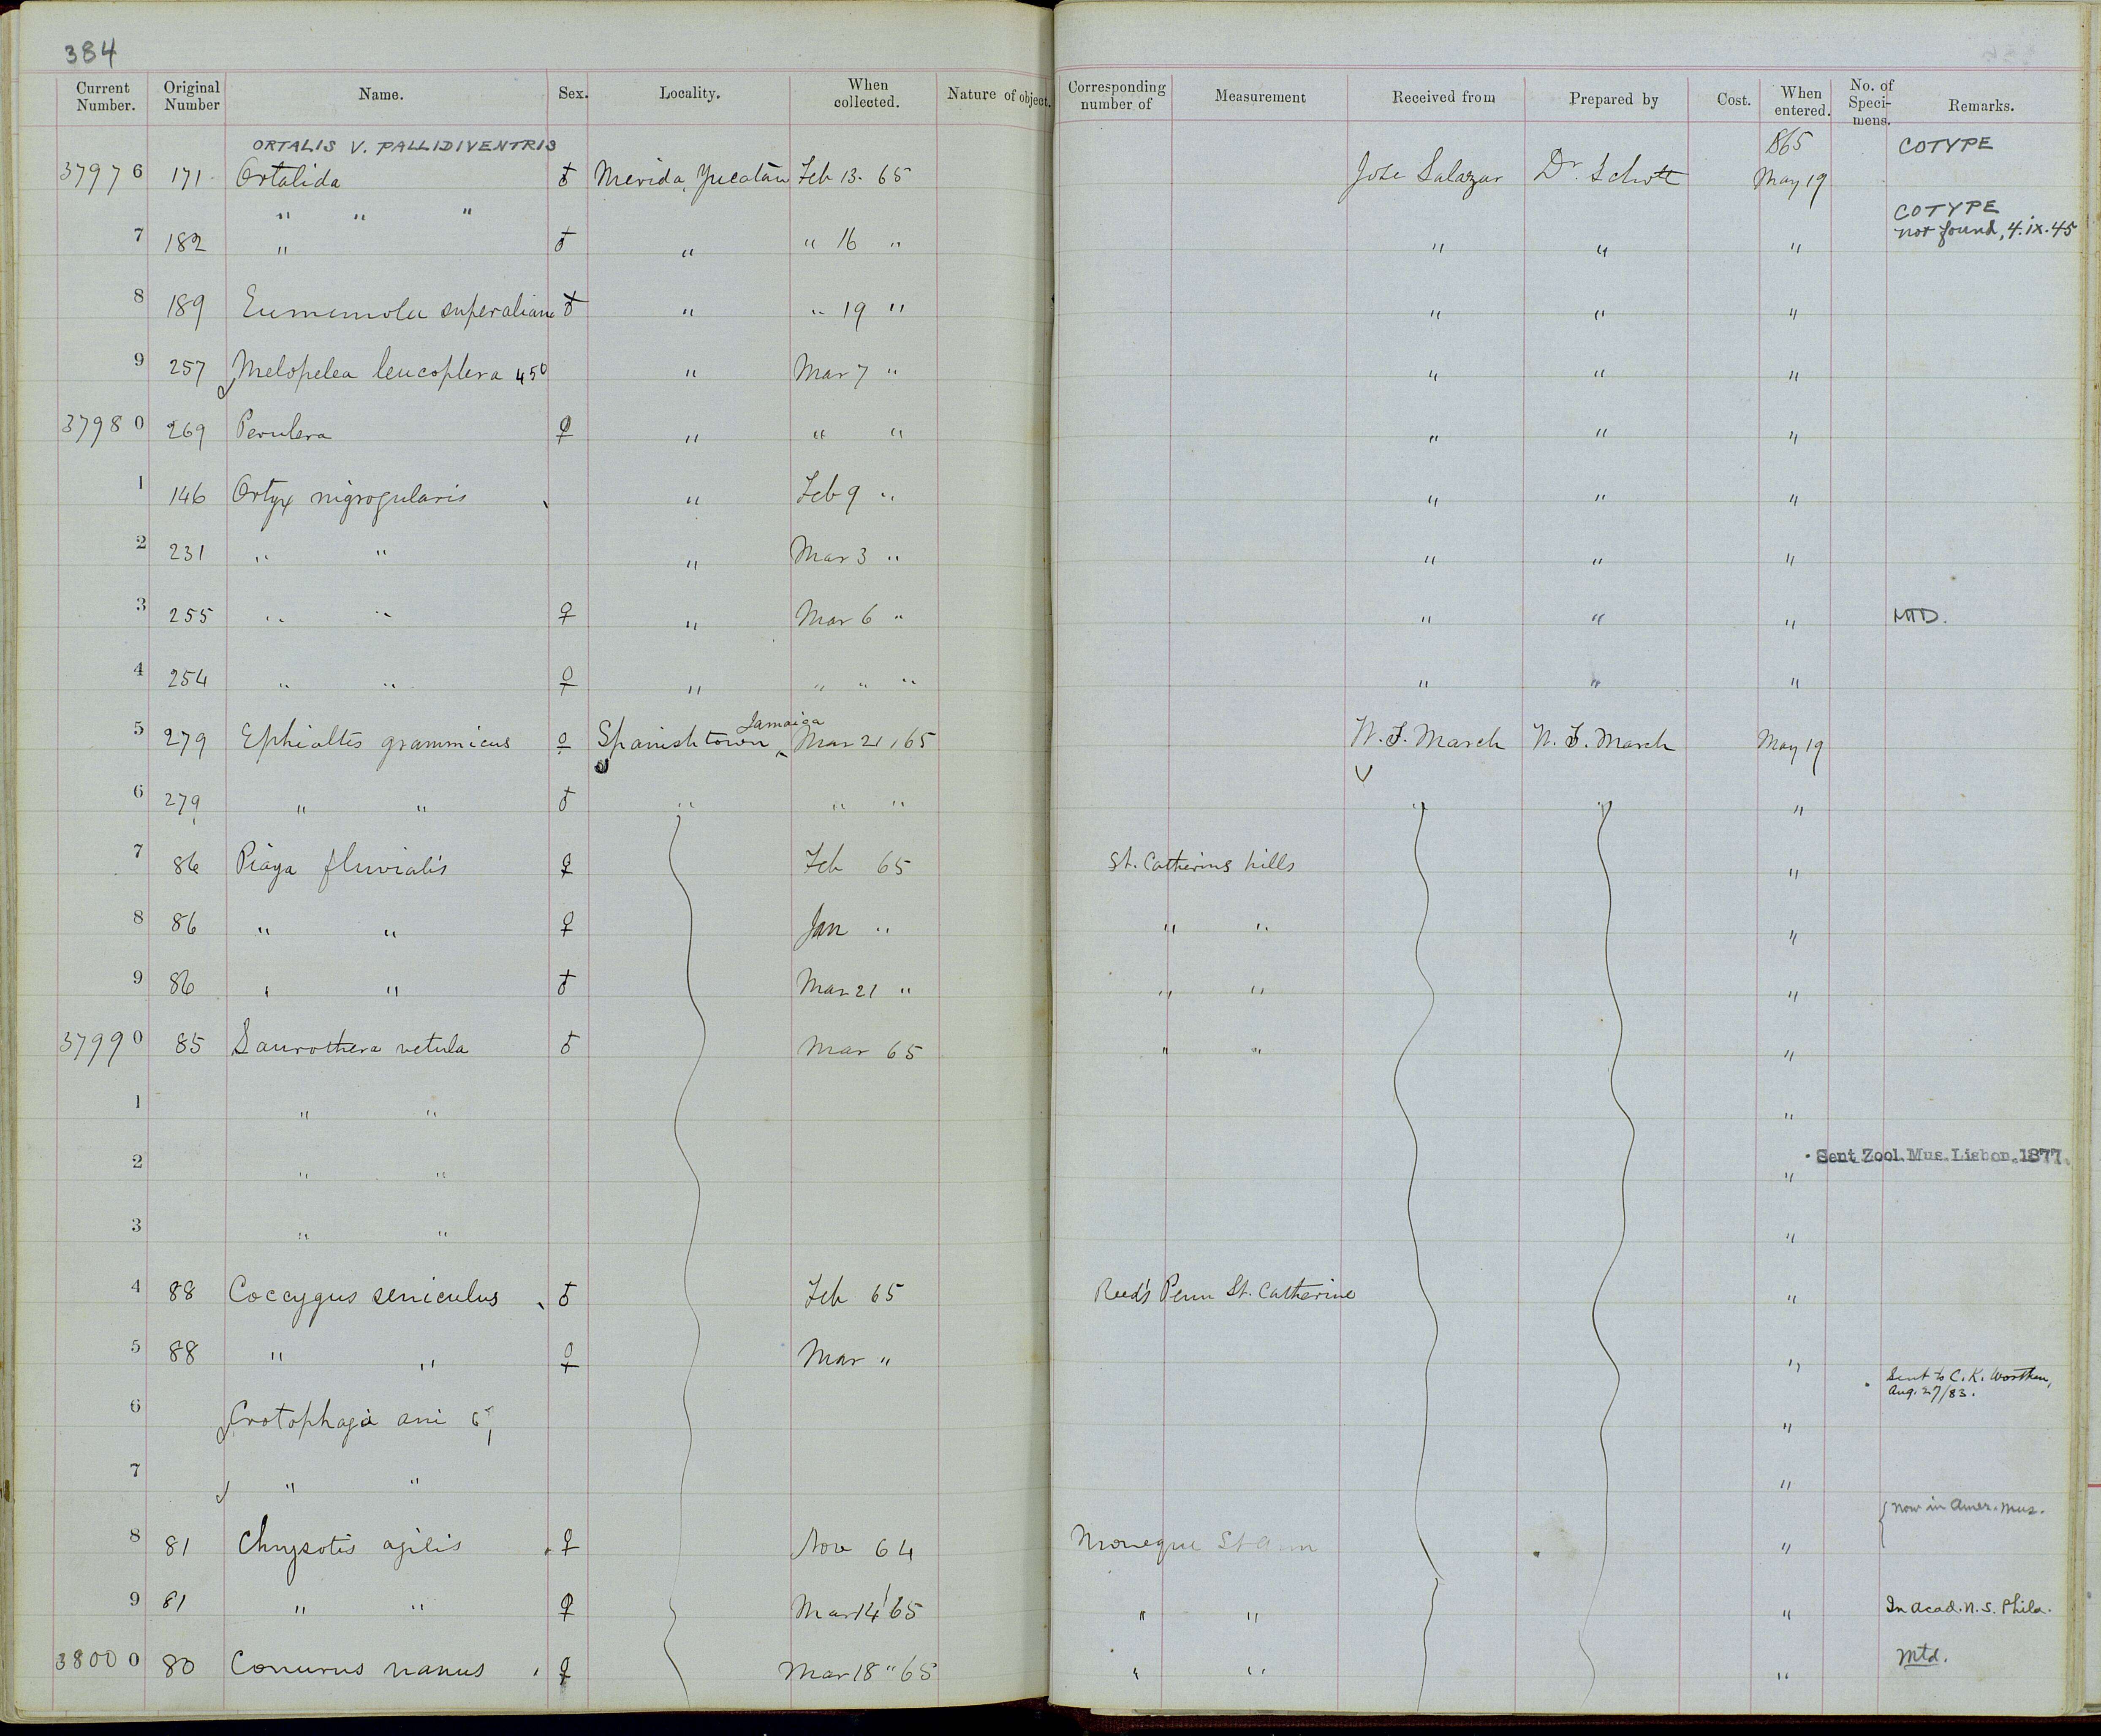 384
Current Number. Original Number Name. Sex. Locality. When collected. Nature of object. Corresponding number of Measurement Received from Prepared by Cost. When entered. No. of Speci-mens. Remarks.
ORTALIS V. PALLIDIVENTRIS 1865 COTYPE
37976 171 Ortalida ♂ Merida, Yucatan Feb 13. 65 Jose Salazar Dr. Schott May 19
" " " COTYPE
7 182 " ♂ " " 16 " " " " not found, 4.ix.45
8 189 ♂ " " 19 " " " "
9 257 Melopelea leucoptera 450 " Mar 7 " " " "
37980 269 ♀ " " " " " "
1 146 Ortyx nigrogularis " Feb 9 " " " "
2 231 " " " Mar 3 " " " "
3 255 " " ♀ " Mar 6 " " " " MTD.
4 254 " " ♀ " " " " " " "
5 279 Ephialtes grammicus ♀ Spanishtown Jamaica Mar 21, 65 W. T. March W. T. March May 19
6 279 " " ♂ " " " " " "
7 86 Piaya pluvialis ♀ Feb 65 St. Catherins hills "
8 86 " " ♀ Jan " " " "
9 86 " " ♂ Mar 21 " " " "
37990 85 Saurothera vetula ♂ Mar 65 " " "
1 " " "
2 " " " Sent Zool. Mus. Lisbon. 1877.
3 " " "
4 88 Coccygus seniculus ♂ Feb 65 Reed's Penn St. Catherine "
5 88 " " ♀ Mar " "
Sent to C. K. Worthen,
Aug. 27/83.
6 Crotophaga ani "
7 " " "
{ now in Amer. Mus.
8 81 Chrysotis agilis ♀ Nov 64 Moneque St Ann "
9 81 " " ♀ Mar 14 '65 " " " In Acad. N. S. Phila.
38000 80 Conurus nanus ♀ Mar 18 " 65 " " " Mtd.